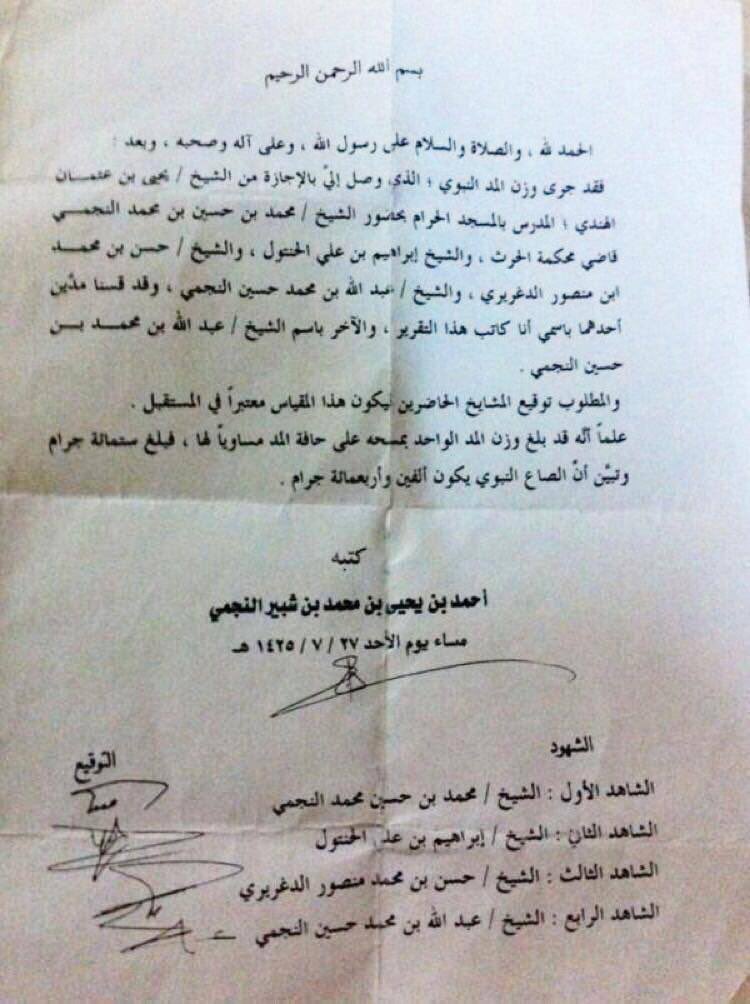 بسم الله الرحمن الرحيم
الحمد لله ، والصلاة والسلام على رسول الله ، وعلى آله وصحبه ، وبعد :
فقد جرى وزن المد النبوي ؛ الذي وصل إليّ بالإجازة من الشيخ / يحيى بن عثمـان
الهندي ؛ المدرس بالمسجد الحرام بحضور الشيخ / محمد بن حسين بن محمد النجمـي
قاضي محكمة الحرث ، والشيخ إبراهيم بن علي الحنتول ، والشيخ / حسن بن محمـد
ابن منصور الدغريري ، والشيخ / عبد الله بن محمد حسين النجمي ، وقد قسنا مدّين
أحدهما باسمي أنا كاتب هذا التقرير ، والآخر باسم الشيخ / عبد الله بن محمـد بـن
حسين النجمي .
والمطلوب توقيع المشايخ الحاضرين ليكون هذا المقياس معتبراً في المستقبل .
علماً أنّه قد بلغ وزن المد الواحد بمسحه على حافة المد مساوياً لها ، فبلغ ستمائة جرام
وتبيّن أنّ الصاع النبوي يكون ألفين وأربعمائة جرام .
كتبه
أحمد بن يحيى بن محمد بن شبير النجمي
مساء يوم الأحد ٢٧ / ٧ / ١٤٢٥ هـ
الشهود
التوقيع
الشاهد الأول : الشيخ / محمد بن حسين محمد النجمي
الشاهد الثاني : الشيخ / إبراهيم بن علي الحنتول
الشاهد الثالث : الشيخ / حسن بن محمد منصور الدغريري
الشاهد الرابع : الشيخ / عبد الله بن محمد حسين النجمي